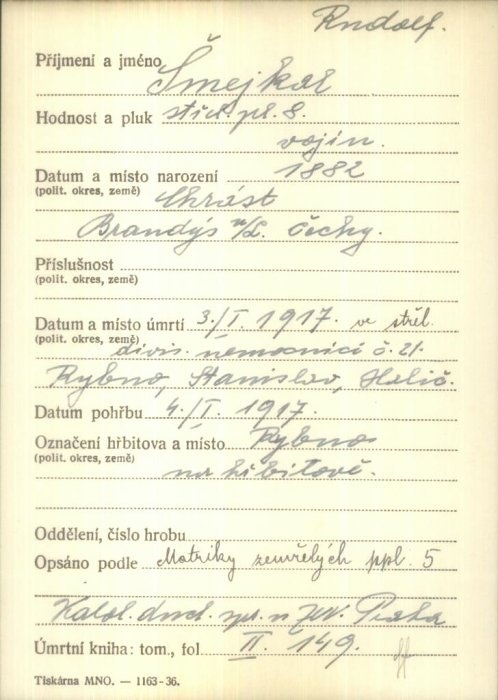 Rudolf.
Příjmení a jméno Šmejkal
Hodnost a pluk střel. pl. 8.
vojín.
Datum a místo narození 1882
(polit. okres, země) Chrást
Brandýs n/L. Čechy.
Příslušnost
(polit. okres, země)
Datum a místo úmrtí 3./I. 1917. ve střel.
(polit. okres, země) divis. nemocnici č. 21.
Rybno, Stanislav, Halič.
Datum pohřbu 4./I. 1917.
Označení hřbitova a místo Rybno
(polit. okres, země) na hřbitově.
Oddělení, číslo hrobu
Opsáno podle Matriky zemřelých ppl. 5
Katol. duch. spr. n JVV. Praha
Úmrtní kniha: tom., fol II. 149.
Tiskárna MNO. — 1163-36.